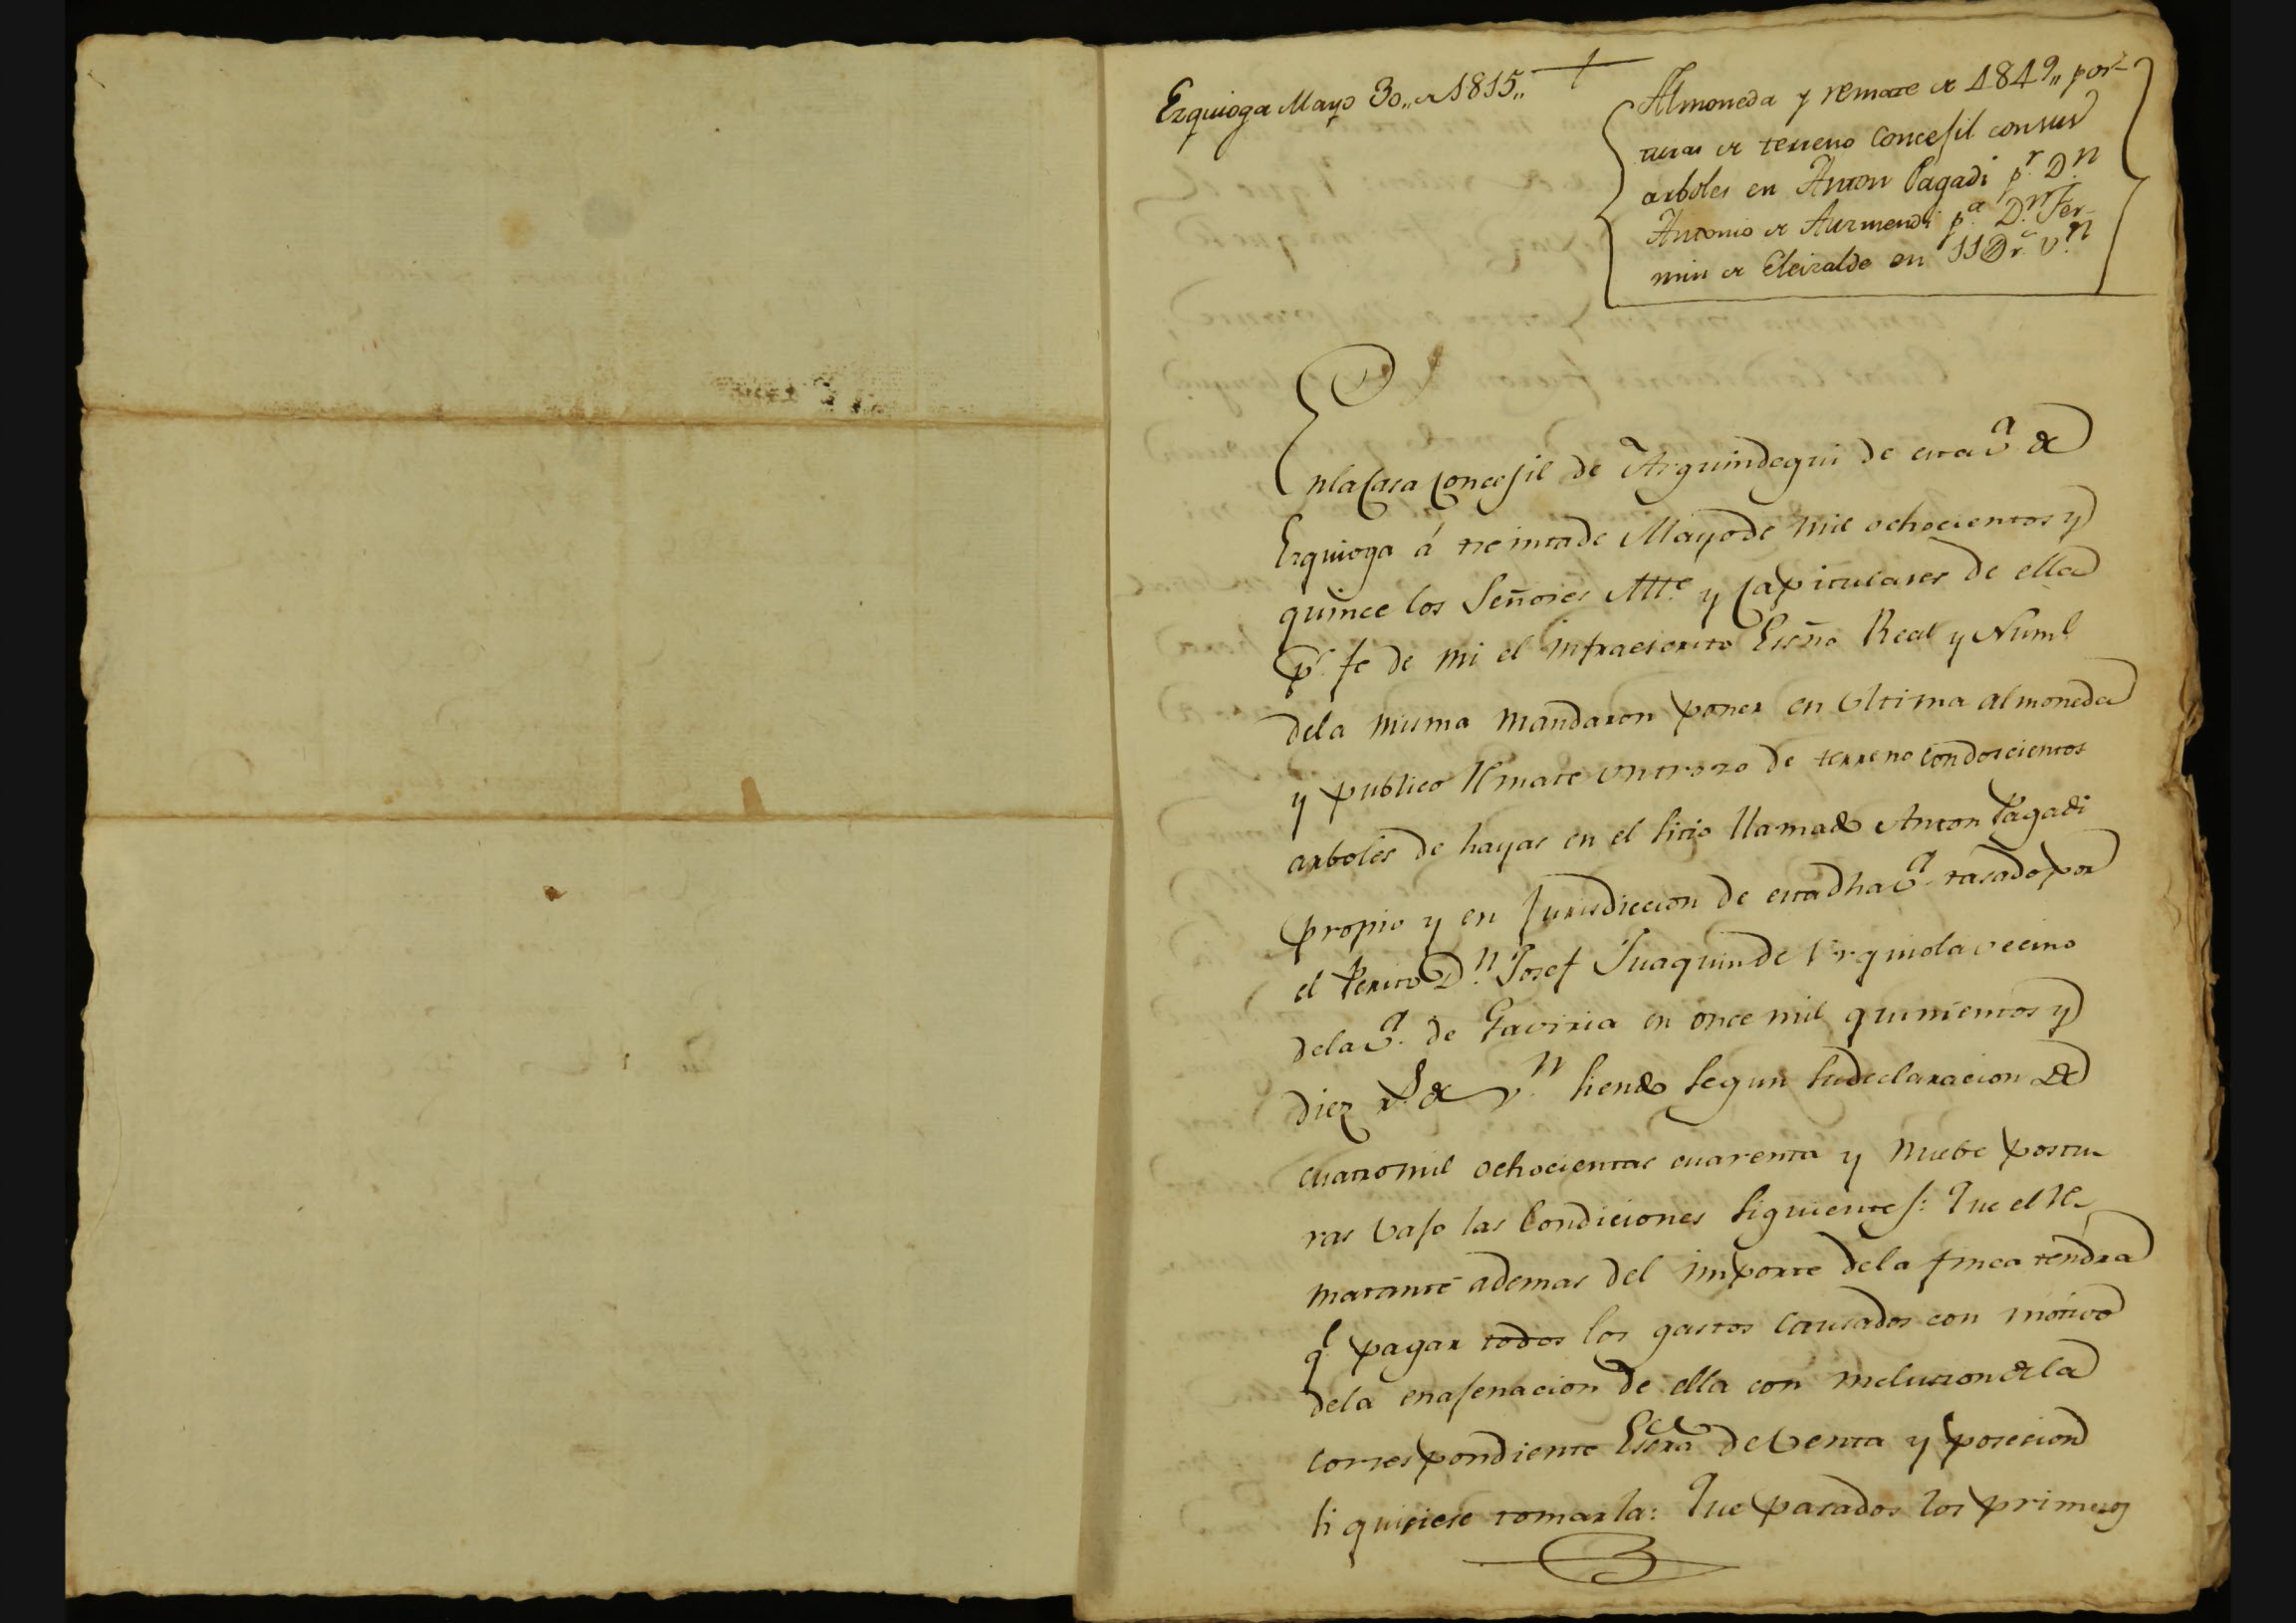 Ezquioga Mayo 30,, de 1815,,
Almoneda y remate de 4849,, pos-
turas de terreno concejil con sus
arboles en Anton Pagadi p.r D.n
Antonio de Aurmendi p.a D.n Fer-
min de Eleizalde en 11 r.s v.n
En la Casa Concejil de Arguindegui de esta V.a de
Ezquioga á treinta de Mayo de mil ochocientos y
quince los Señores Alle. y Capitulares de ella
p.r fe de mi el infraescrito Essno Real y Numl
dela misma mandaron poner en ultima almoneda
y publico Rmate un trozo de terreno con doscientos
arboles de hayas en el sitio llamado Anton Pagadi
propio y en Jurisdiccion de esta dha V.a tasado por
el Perito D.n Josef Juaquin de Urquiola vecino
dela V.a de Gaviria en once mil quinientos y
diez r.s de v.n siendo segun su declaracion de
cuatro mil ochocientas cuarenta y nuebe postu-
ras bajo las Condiciones siguientes: Que el Re-
matante ademas del importe dela finca tendra
q.e pagar todos los gastos causados con motivo
dela enajenacion de ella con inclusion de la
correspondiente Escra de Venta y posecion
si quisiese tomarla: Que pasados los primeros